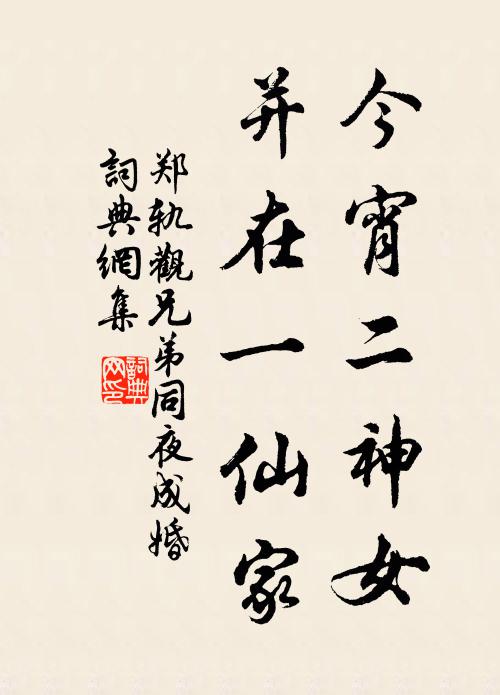 今宵二神女
并在一仙家
郑轨觀兄弟同夜成婚
詞典網集
詞典网印